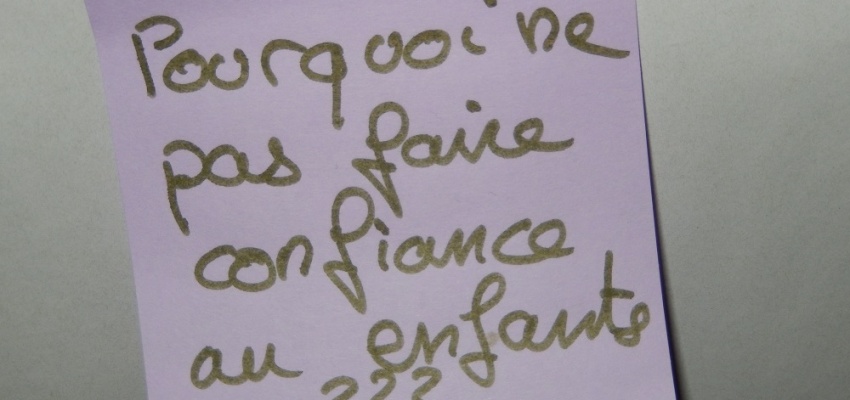 Pourquoi ne
pas faire
confiance
au enfants
???